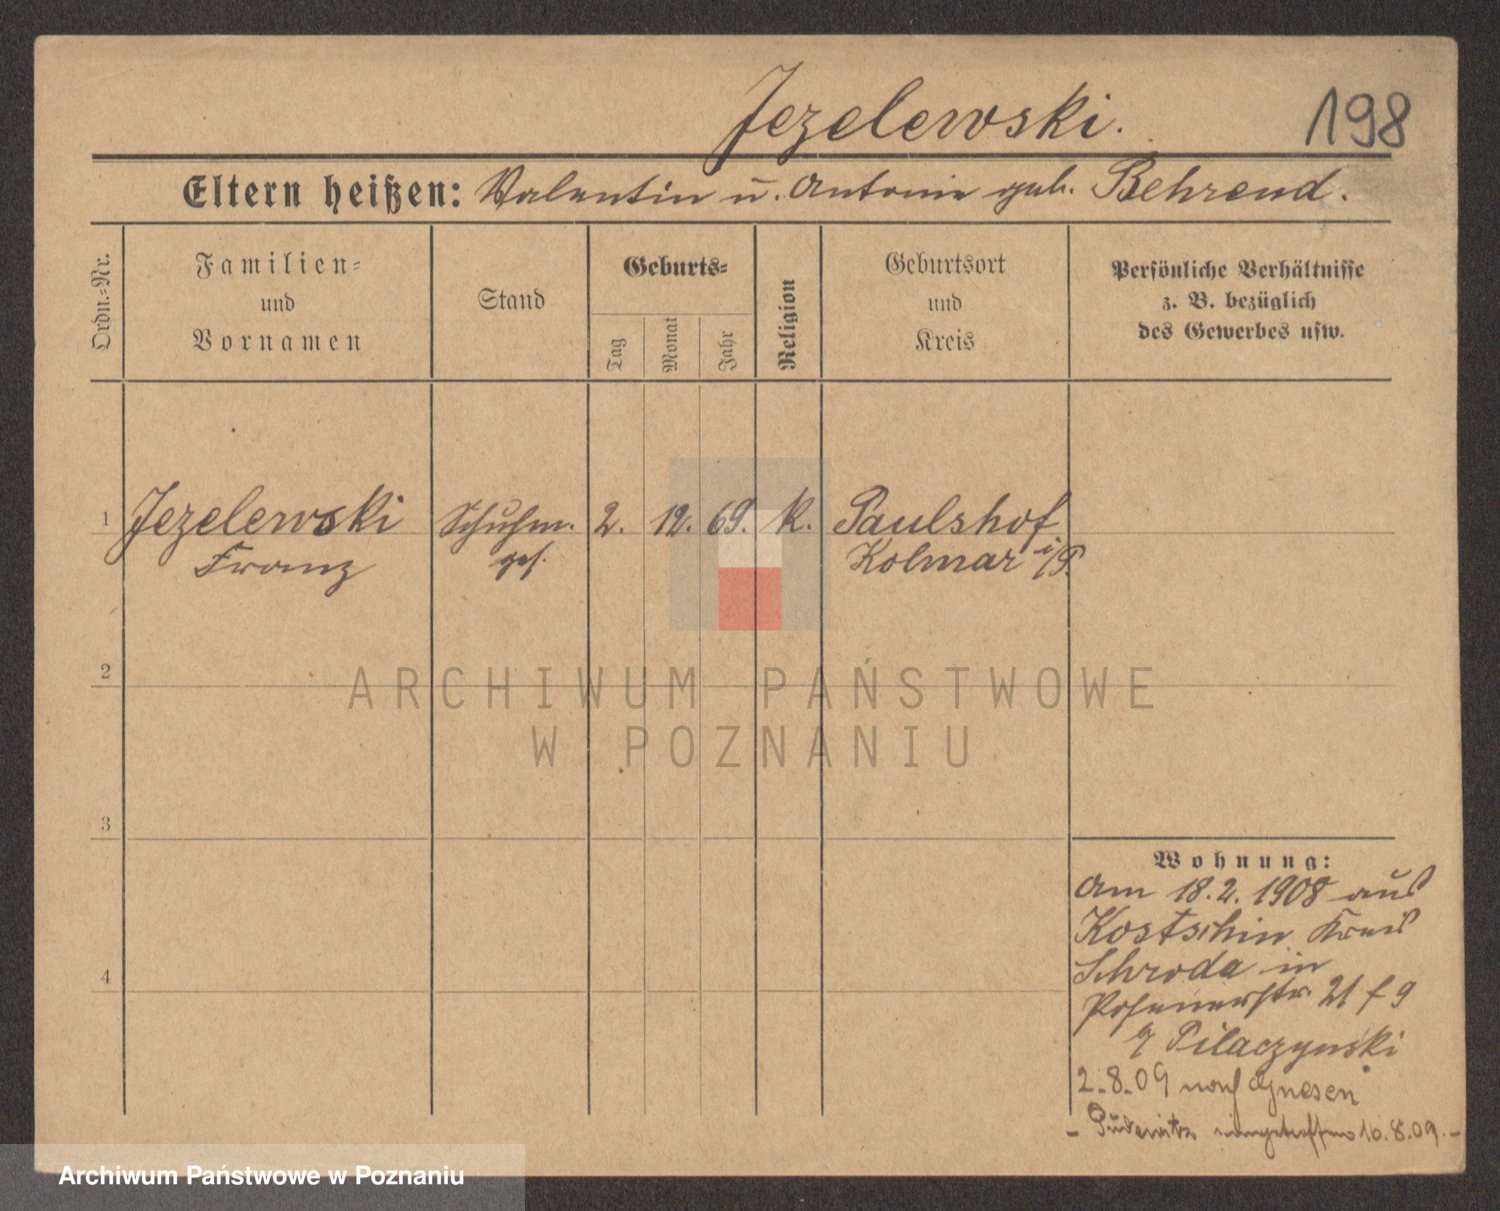 Jezelewski.
198
Eltern heißen: Valentin u. Antonie geb. Behrend.
Ordn.-Nr.
Familien-
und
Vornamen
Stand
Geburts-
Tag
Monat
Jahr
Religion
Geburtsort
und
Kreis
Persönliche Verhältnisse
z. B. bezüglich
des Gewerbes usw.
1 Jezelewski Schuhm. 2. 12. 69. k. Paulshof
Franz ges. Kolmar i/P.
2
ARCHIWUM PAŃSTWOWE
W POZNANIU
3
Wohnung:
Am 18.2.1908 aus
Kostschin Kreis
Schroda in
4
Posenerstr. 21 f 9
Pilaczynski
2.8.09 nach Gnesen
- Pudewitz eingetroffen 10.8.09. -
Archiwum Państwowe w Poznaniu